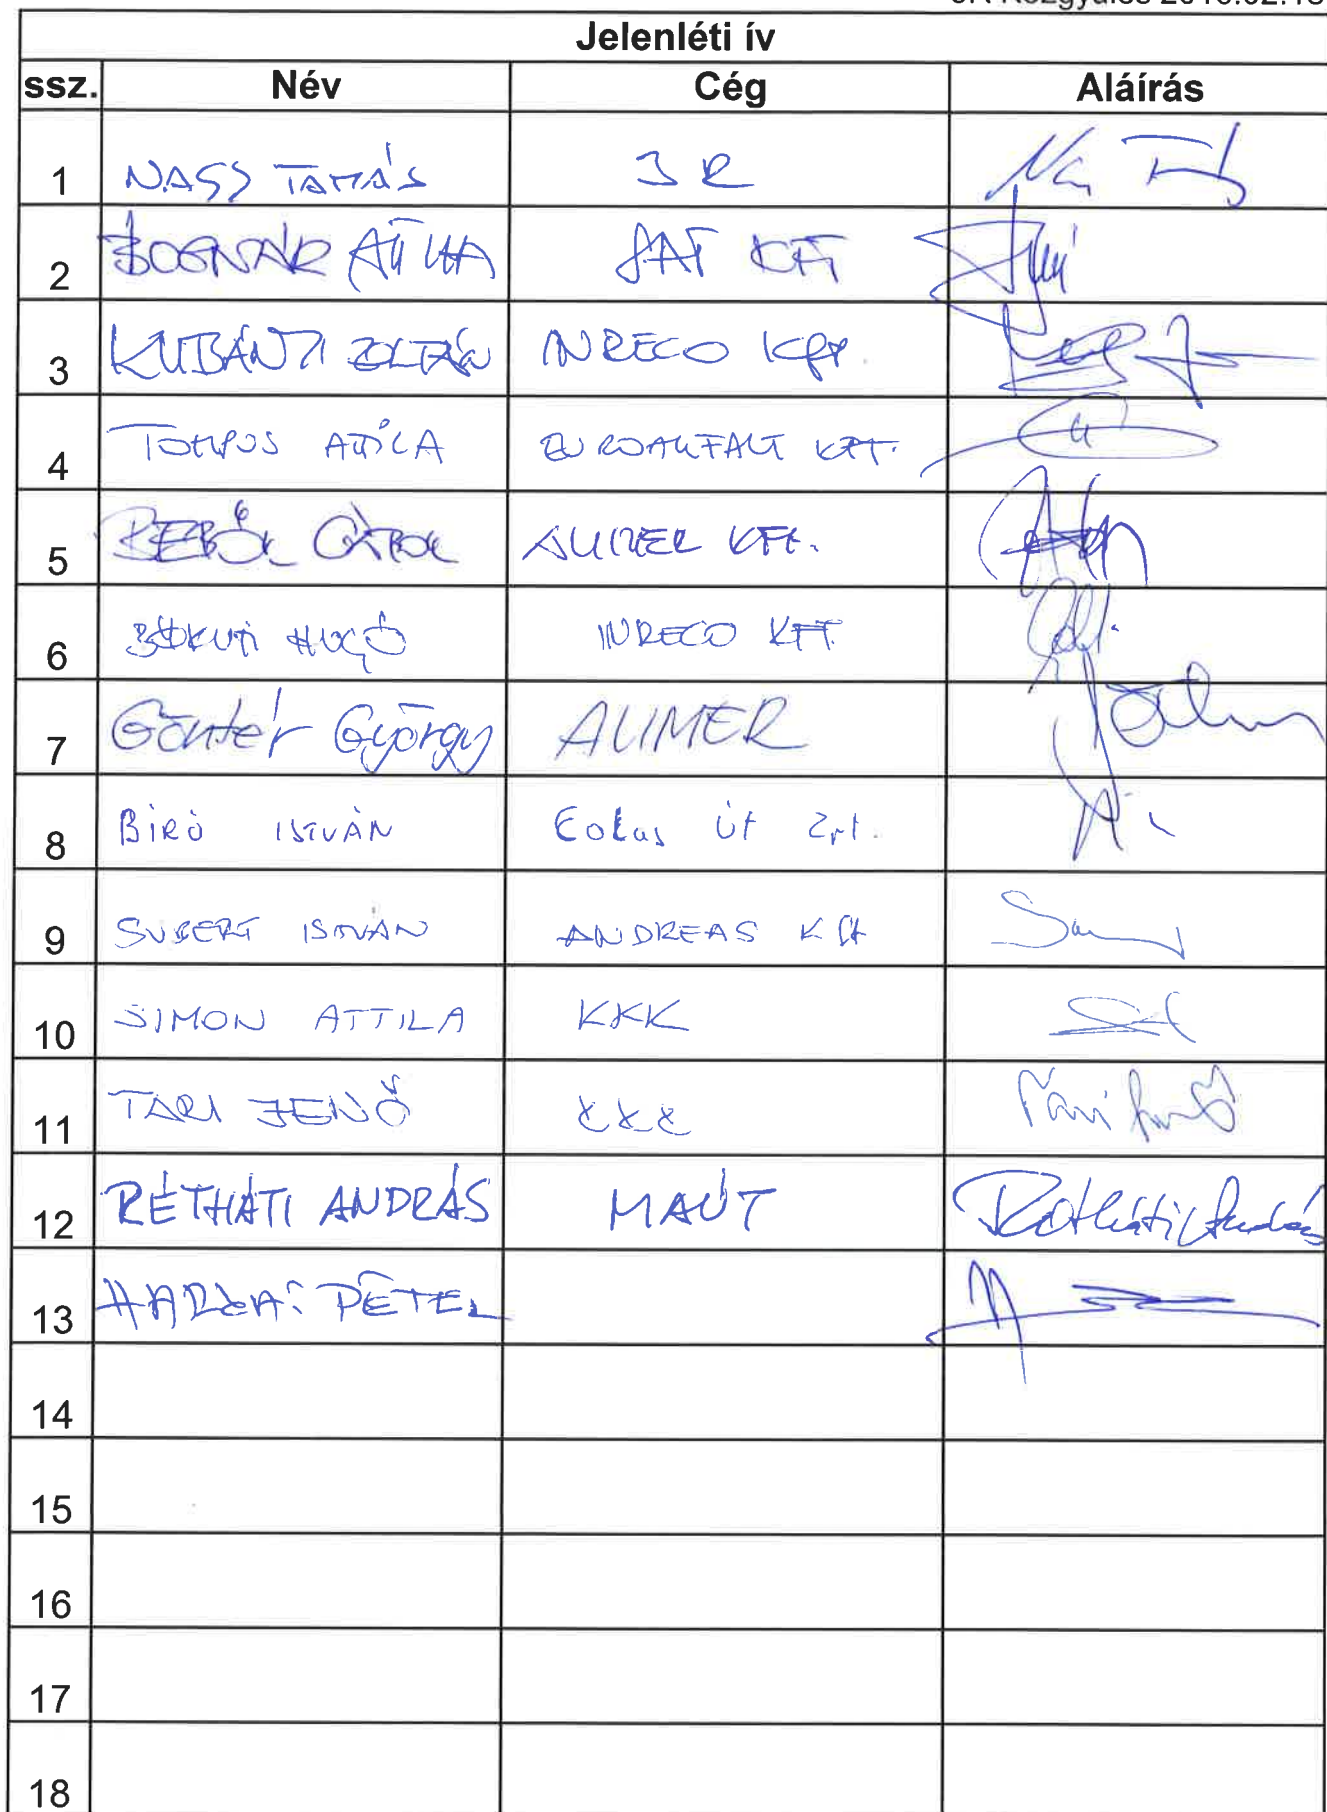 Jelenléti ív
ssz. Név Cég Aláírás
1 NAGY TAMÁS JR
2 BOGNÁR ATTILA KFT
3 KUBÁNYI ZOLTÁN INRECO Kft.
4 TOMPOS ATTILA EUROASZFALT KFT.
5 GÁBOR KFT.
6 HUGÓ INRECO KFT.
7 Göntér György ALIMER
8 BIRÓ ISTVÁN Colas Út Zrt.
9 SUBERT ISTVÁN ANDREAS Kft
10 SIMON ATTILA KKK
11 TARI JENŐ KKK Tari Jenő
12 RÉTHÁTI ANDRÁS MAÚT Rétháti András
13 PÉTER
14
15
16
17
18